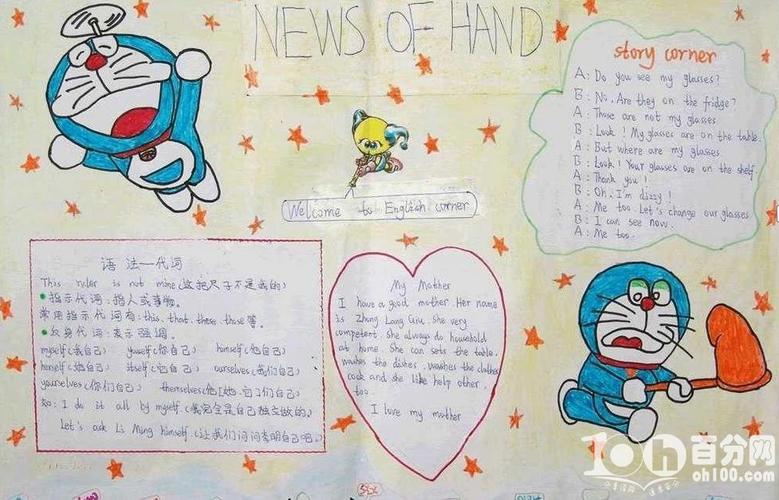 NEWS OF HAND
story corner
A: Do you see my glasses?
B: No. Are they on the fridge?
A: Those are not my glasses
B: Look! My glasses are on the table.
A: But where are my glasses
B: Look! Your glasses are on the shelf.
A: Thank you!
B: Oh, I'm dizzy!
A: Me too. Let's change our glasses
B: I can see now.
A: Me too.
Welcome to English corner
语法一代词
This ruler is not mine(这把尺子不是我的)
指示代词:指人或事物。
常用指示代词有:this. that. these. those等。
反身代词:表示强调。
myself(我自己) youself(你自己) himself(他自己)
herself(她自己) itself(它自己) ourselves(我们自己)
yourselves(你们自己) themselves(他[她.它]们自己)
如:I do it all by myself(我完全是自己独立做的。)
Let's ask Li Ming himself.(让我们问问李明自己吧。)
My Mother
I have a good mother. Her name
is Zhong Lang Qiu. She very
competent. She always do household
at home. She can sets the table.
washes the dishes. washes the clothes
cook and she like help other,
too.
I love my mother
10h百分网
oh100.com